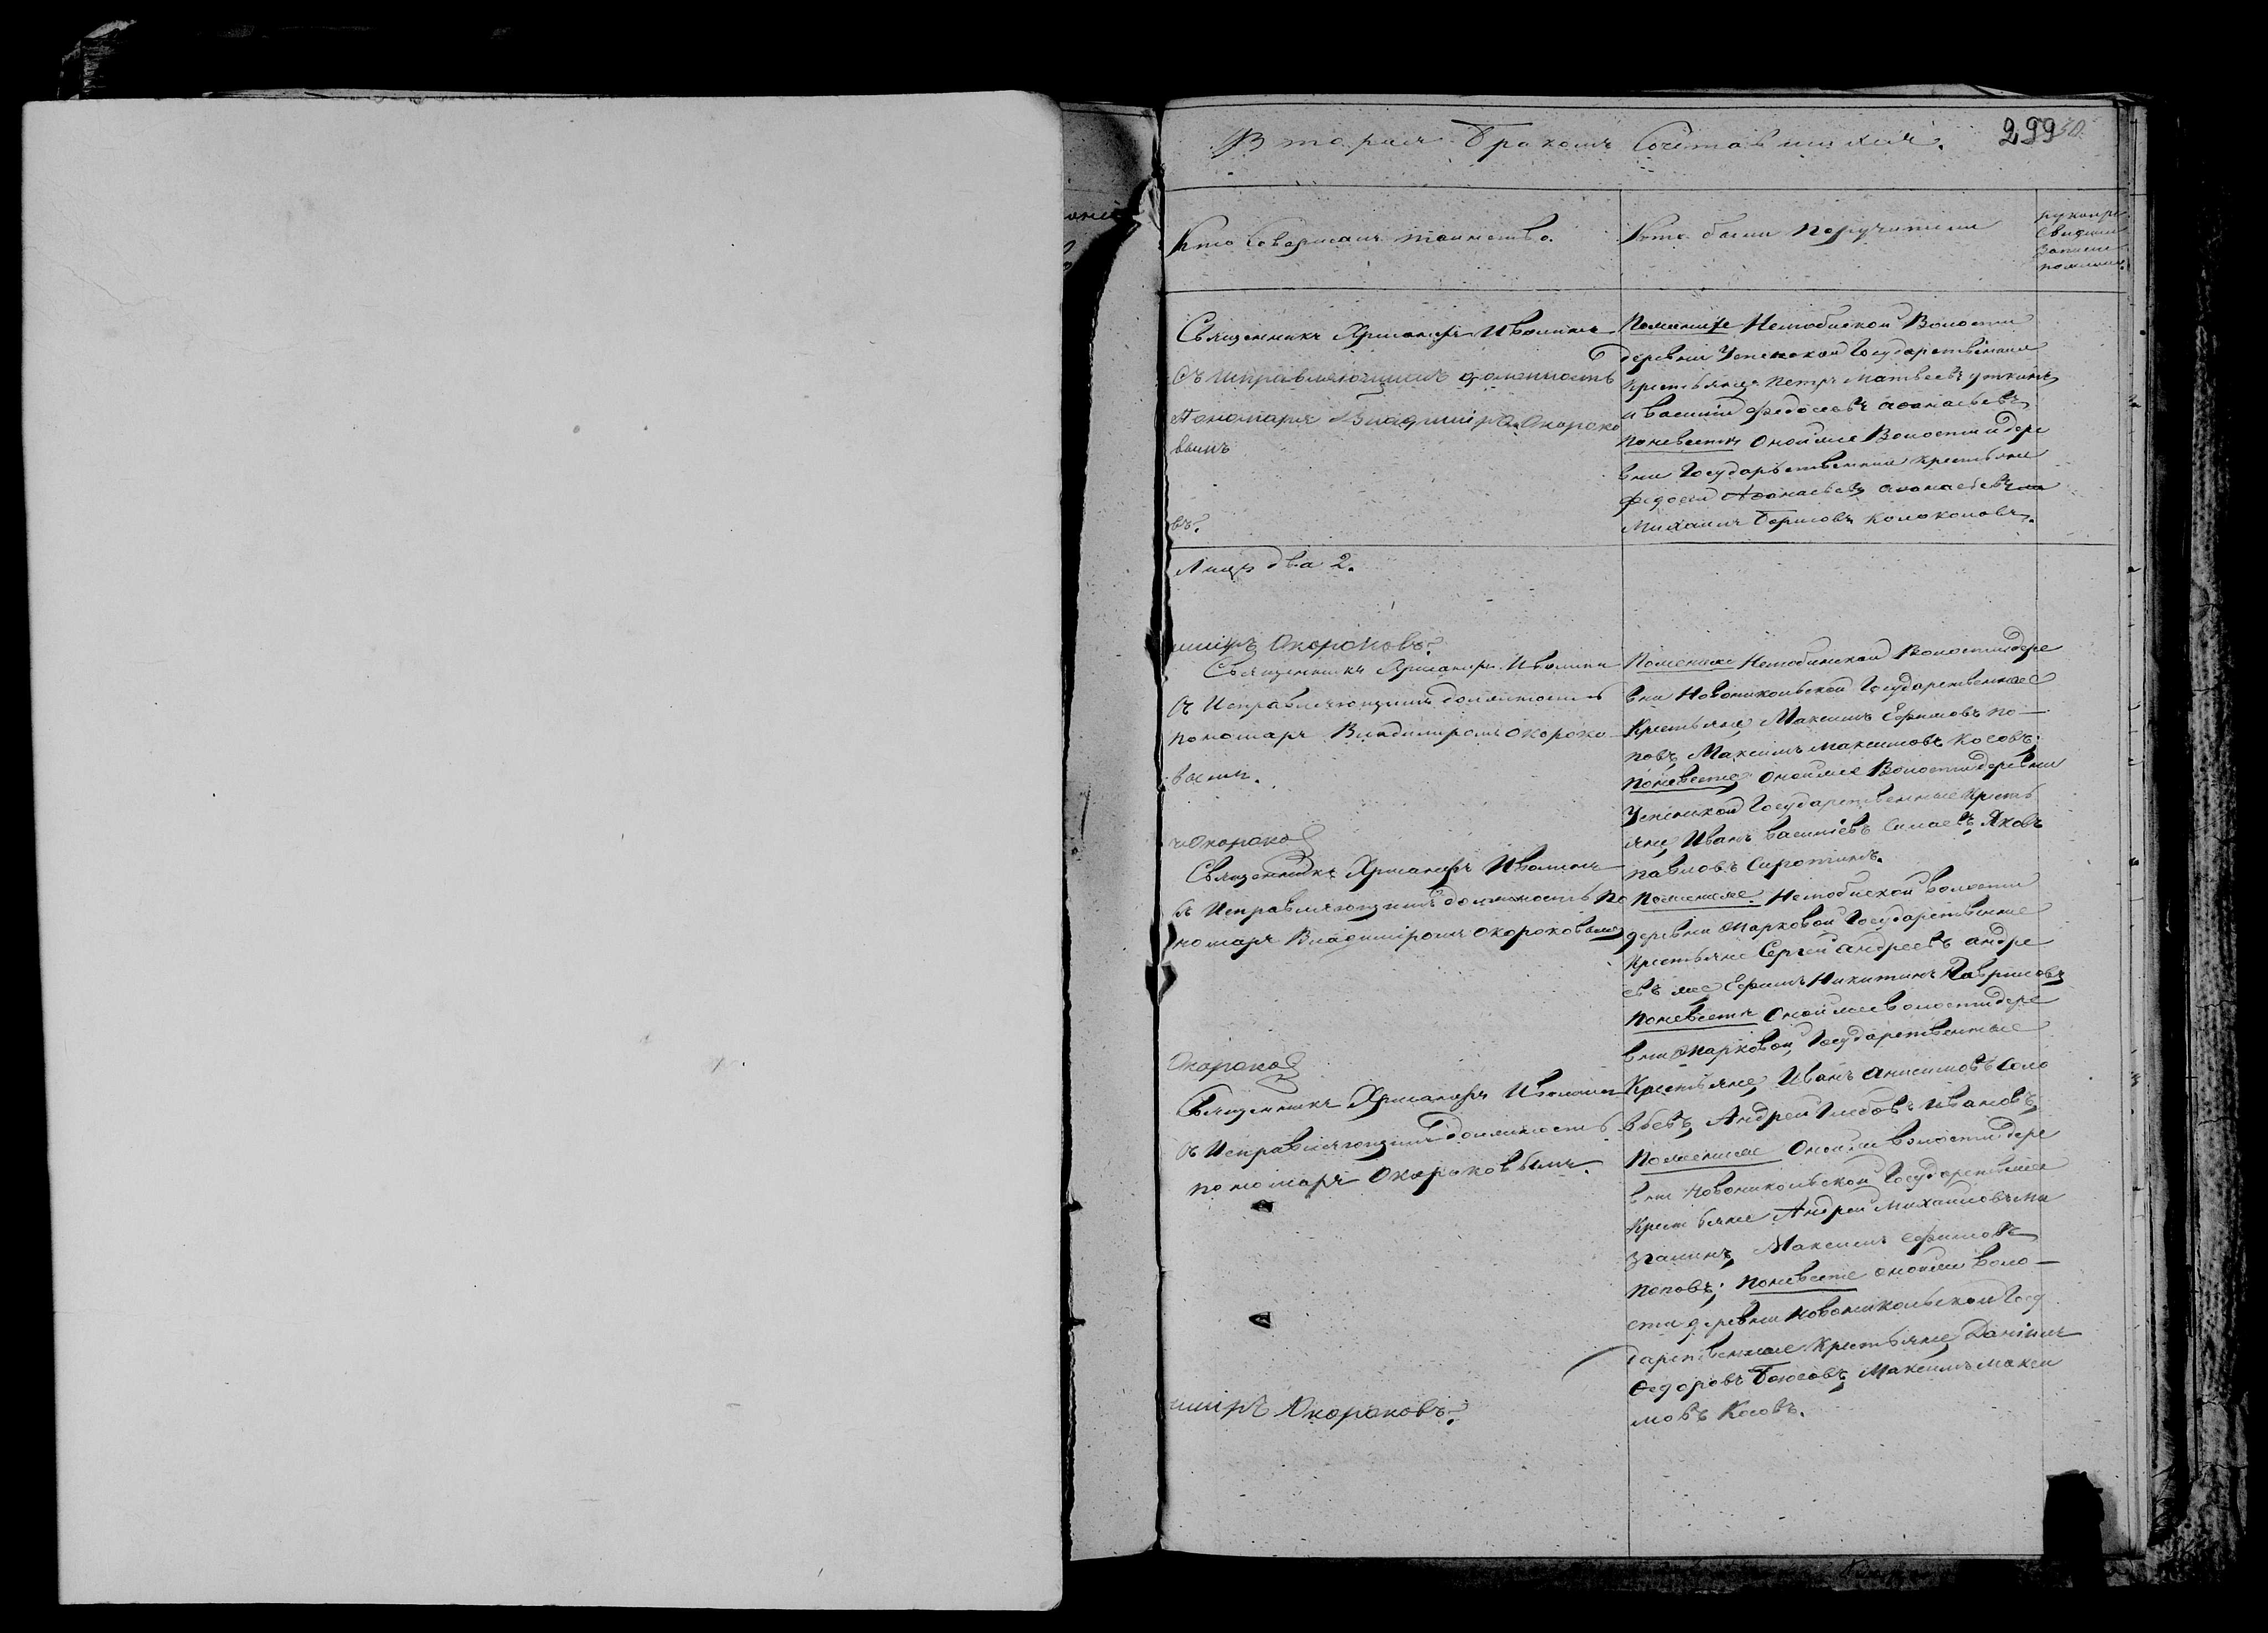 Вторая Бракомъ Сочетавшихся.
299
Кто Совершалъ таинство.
Кто были Поручители
рукопри
Священникъ Ивалинъ
съ исправляющимъ должность
пономаря Владиміромъ Окороко
вымъ
въ.
Лицъ два 2.
По женихе Волости
деревни Успенской Государственныи
крестьяне Петръ Матвеевъ Уткинъ
и Василій Федосеевъ Афанасьевъ
По невестѣ Оной же Волости и дере
вни Государственныи крестьяне
Федосеи Афонасьевъ Афонасьевъ и
Михаилъ Борисовъ Колоколовъ.
миръ Окороковъ.
Священникъ Ивалинъ
съ Исправляющимъ должность
пономаря Владимиромъ Окороко
вымъ.
По женихе Волости дере
вни Новоникольской Государственные
Крестьяне, Максимъ Ефимовъ По-
повъ, Максимъ Максимовъ Косовъ;
По невесте, Оной же Волости деревни
Успенской Государственные Кресть
яне, Иванъ Васильевъ Яковъ
Павловъ Сиротинъ.
Окороко
Священникъ Ивалинъ
съ Исправляющимъ должность По
номаря Владиміромъ Окороковымъ
По женихе. волости
деревни Марковой Государственные
Крестьяне Сергей Андреевъ Андре
евъ же Ефимъ Никитинъ Гавриловъ
По невестѣ Оной же волости дере
вни Марковой, Государственные
Крестьяне, Иванъ Анисимовъ Соло
вьевъ, Андрей Глебовъ Ивановъ,
Окороко
Священникъ Ивалинъ
съ Исправляющимъ должность
пономаря Окороковымъ.
По женихе Оной же волости дере
вни Новоникольской Государственные
Крестьяне Андрей Михайловъ Ма
Максимъ Ефимовъ
Поповъ; По невесте оной же воло-
сти деревни Новоникольской Госу
дарственные Крестьяне, Данiилъ
Федоровъ Максимъ Макси
мовъ Косовъ.
миръ Окороковъ.